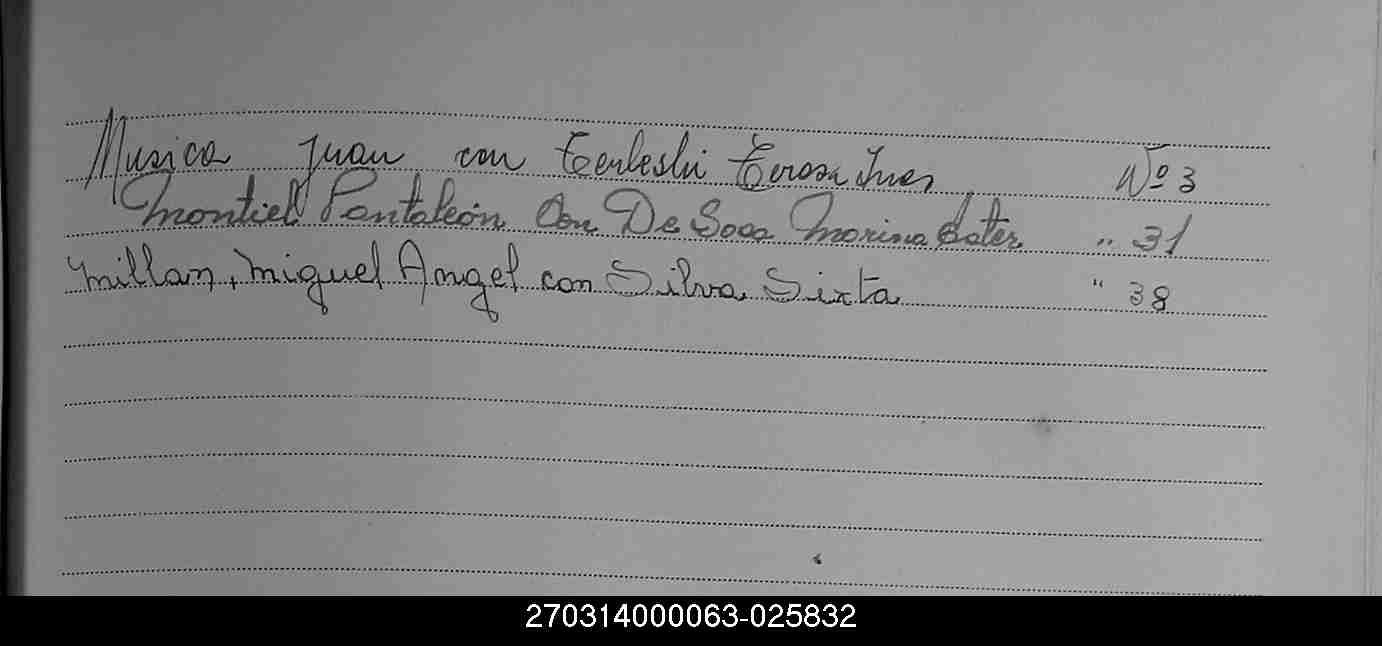 Musica Juan con Terleski Teresa Ines Nº 3
Montiel Pantaleón Con De Sosa Marina Ester " 31
Millan, Miguel Angel con Silva Sixta " 38
270314000063-025832